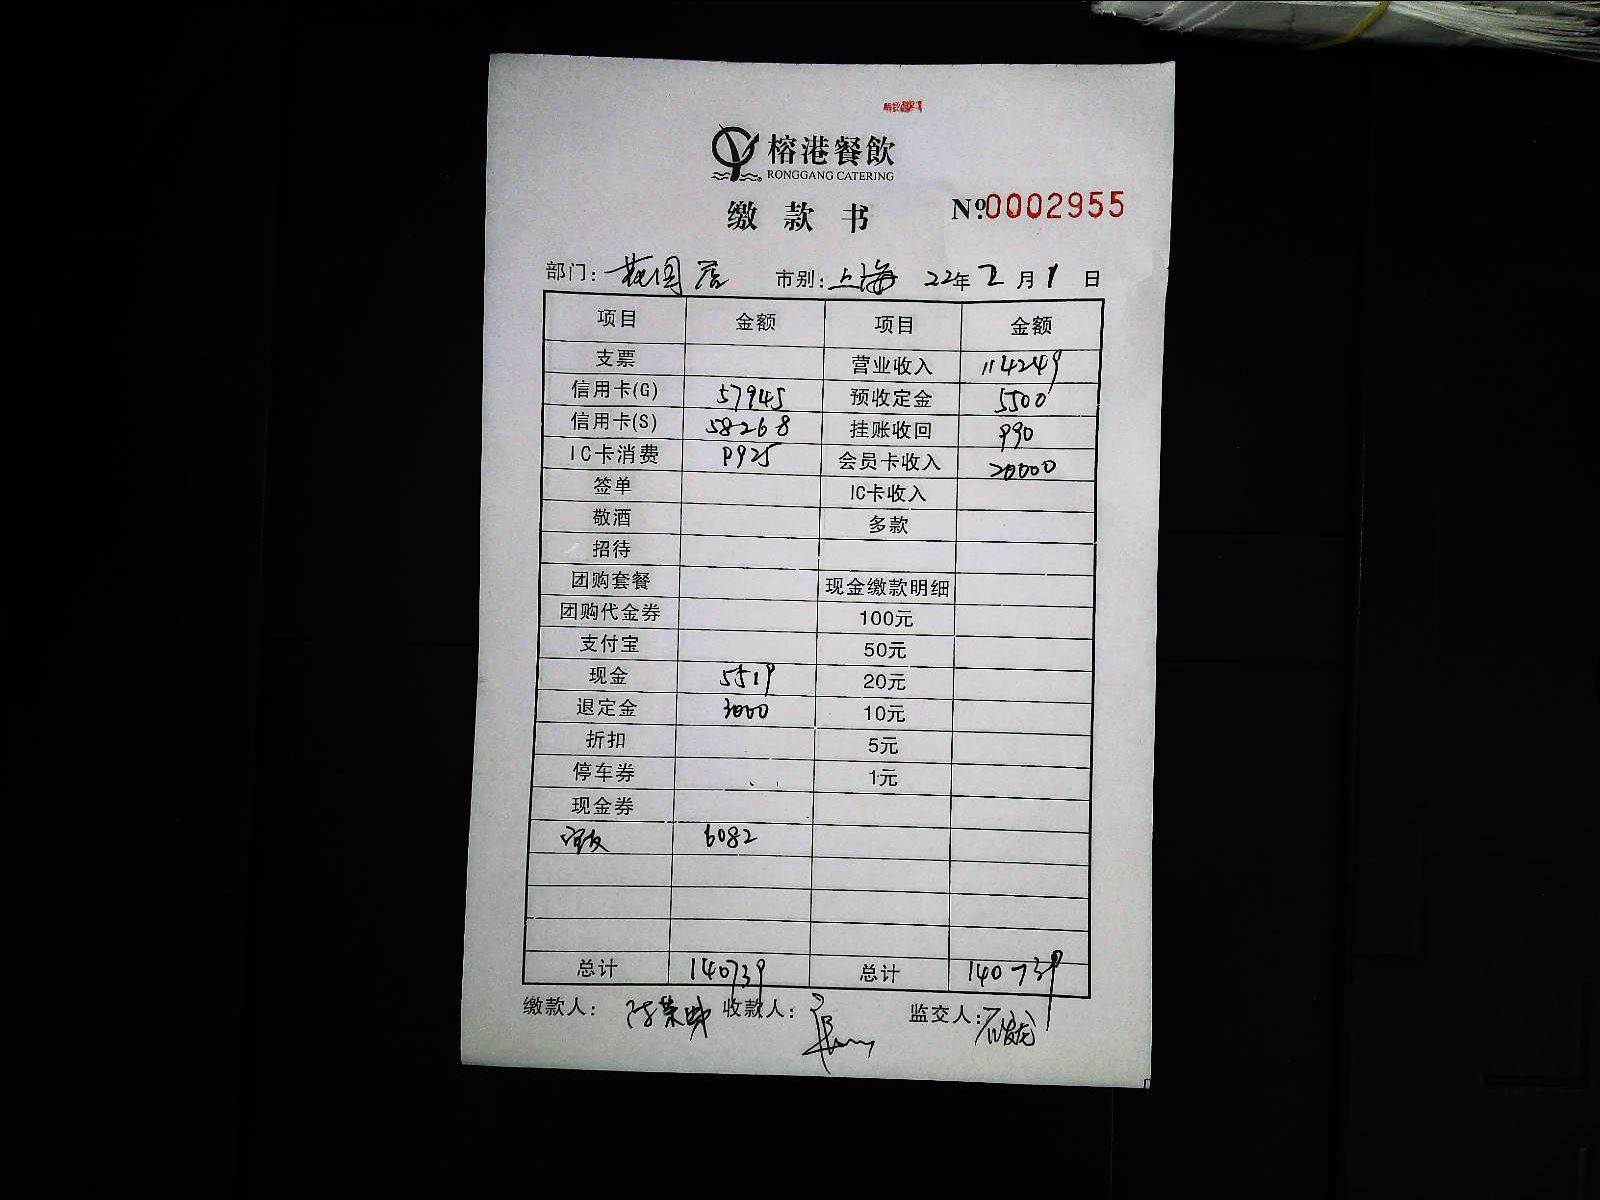 榕港餐飲
RONGGANG CATERING
缴款书 №0002955
部门: 花园店 市别: 上海 22年2月1日
项目 金额 项目 金额
支票 营业收入 114249
信用卡(G) 57945 预收定金 5500
信用卡(S) 58268 挂账收回 990
IC卡消费 9925 会员卡收入 20000
签单 IC卡收入
敬酒 多款
招待
团购套餐 现金缴款明细
团购代金券 100元
支付宝 50元
现金 5519 20元
退定金 3000 10元
折扣 5元
停车券 1元
现金券
6082
总计 140739 总计 140739
缴款人: 收款人: 监交人: